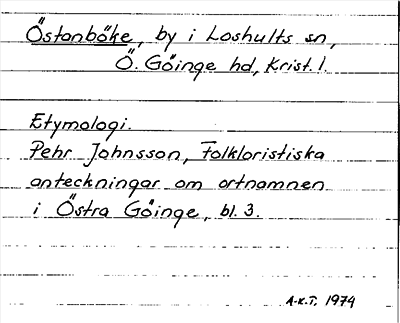 Östanböke, by i Loshults sn,
Ö. Göinge hd, Krist. l.
Etymologi.
Pehr Johnsson, Folkloristiska
anteckningar om ortnamnen
i Östra Göinge, bl. 3.
A-K.T. 1974